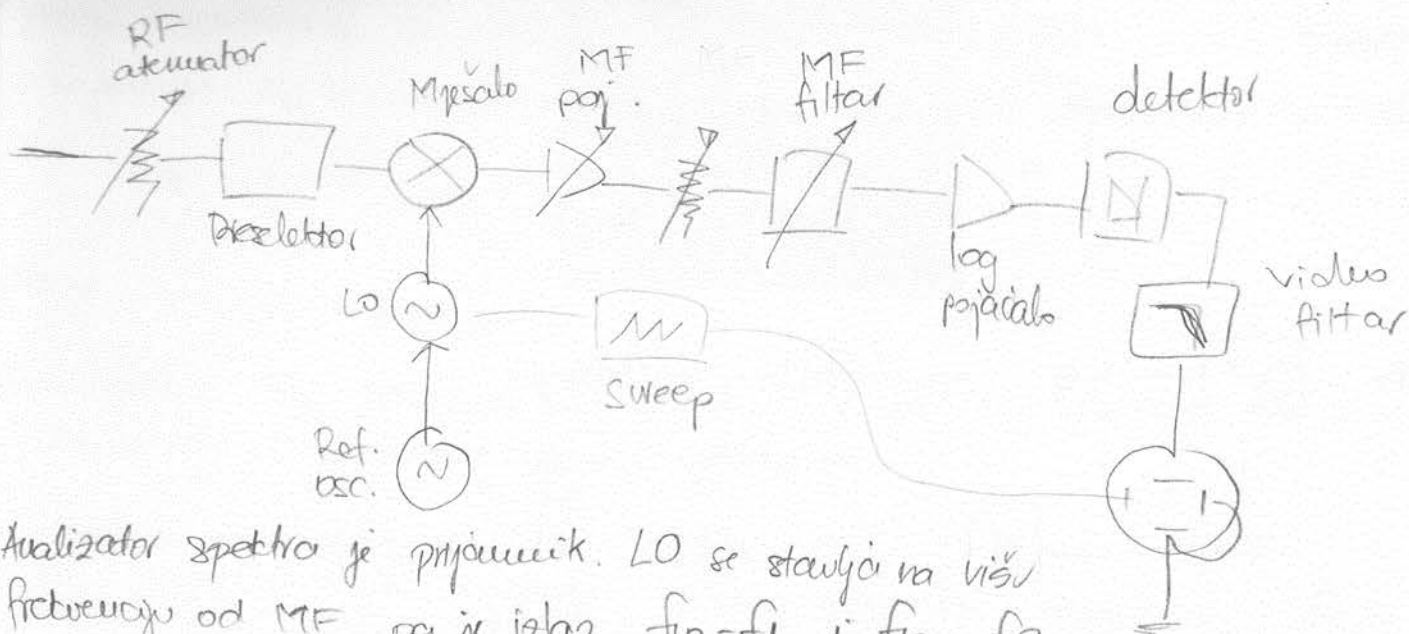 RF
atenuator
Mješalo
MF
poj.
MF
filtar
detektor
Preselektor
LO
Sweep
log
pojačalo
video
filtar
Ref.
osc.
Analizator spektra je prijamnik. LO se stavlja na višu
frekvenciju od MF pa je izlaz